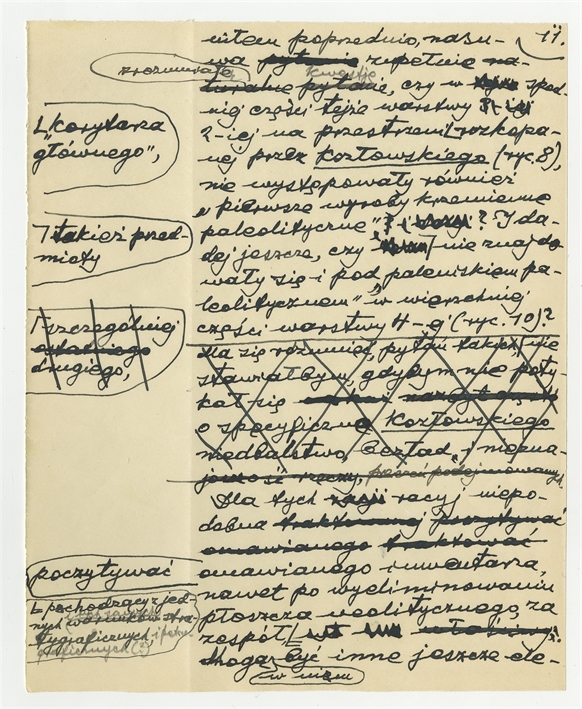 11.
niłem poprzednio, nasu-
wa pytanie zupełnie na-
zrozumiała
kwestja
turalne pytanie, czy w spod-
niej części tejże warstwy
2-iej na przestrzeni rozkopa-
nej przez Kozłowskiego (ryc. 8),
nie występowały również
"pierwsze wyroby krzemienne
paleolityczne", ? I da-
lej jeszcze, czy nie znajdo
wały się i pod paleniskiem pa-
leolitycznem" w wierzchniej
części warstwy 4-ej (ryc. 10)?
Ma się rozumieć, pytań takich nie
stawiałbym, gdybym nie poty-
kał się
o specyficzne Kozłowskiego
niedbalstwo, bezład i niezna-
jomość rzeczy,
Dla tych racyj niepo-
dobna traktować poczytywać
omawianego traktować
omawianego inwentarza,
nawet po wyeliminowaniu
płaszcza neolitycznego, za
zespół
Mogą być inne jeszcze ele-
w nim
"korytarza
głównego",
takież przed-
mioty
szczególniej
ostatniego
drugiego,
poczytywać
pochodzący z jed-
nych warunków stra-
tygraficznych